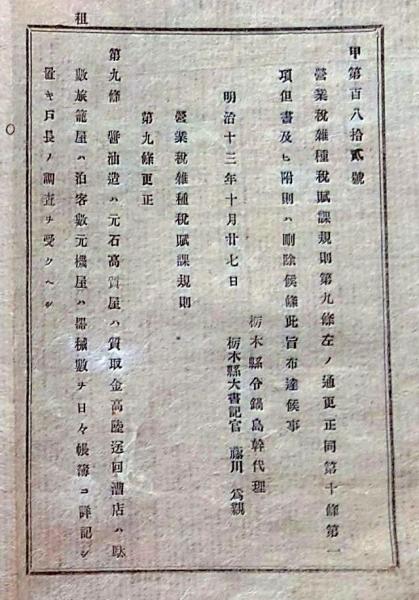 租
甲第百八拾貳號
營業稅雜種稅賦課規則第九條左ノ通更正同第十條第一
項但書及ヒ附則ハ刪除候條此旨布達候事
明治十三年十月廿七日
栃木縣令鍋島幹代理
栃木縣大書記官 藤川爲親
營業稅雜種稅賦課規則
第九條更正
第九條 醬油造ハ元石高質屋ハ質取金高陸送回漕店ハ駄
數旅籠屋ハ泊客數元機屋ハ器械數ヲ日々帳簿コ詳記シ
置キ戶長ノ調査ヲ受クヘシ